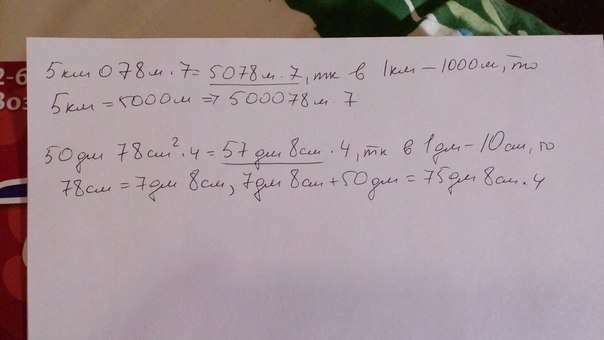 5км 078м · 7 = 5078м · 7, тк в 1км – 1000м, то
5км = 5000м ⇒ 500078м 7
50дм 78см² · 4 = 57дм 8см · 4, тк в 1дм – 10см, то
78см = 7дм 8см, 7дм 8см + 50дм = 75дм 8см · 4
2-6
Воз